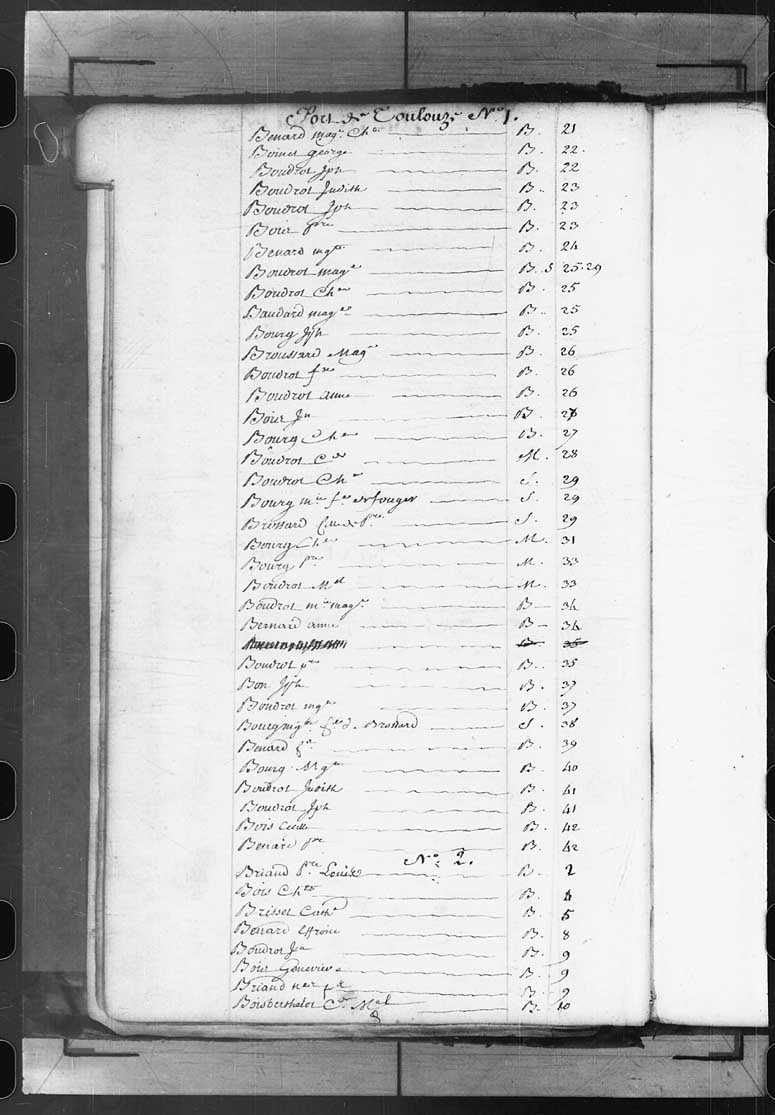 Port de Toulouze No 1.
Benard mag.e Ch.te B. 21
Boinet george B. 22.
Boudrot Jph B. 22
Boudrot Judith B. 23
Boudrot Jph B. 23
Bois p.re B. 23
Benard mg.te B. 24
Boudrot mag.e B. S 25.29
Boudrot Ch.es B. 25
Baudard mag.ne B. 25
Bourg Jph B. 25
Broussard Mag.e B. 26
Boudrot f.se B. 26
Boudrot anne B. 26
Bois Jn B. 26
Bourg Ch.es B. 27
Boudrot M. 28
Boudrot Ch.es S. 29
Bourg m.ie f.e S. 29
Brossard p.re S. 29
Bourg Ch.es M. 31
Bourg p.re M. 33
Boudrot M.el M. 33
Boudrot m.ie mag.ne B 34
Bernard anne B 34
B 35
Boudrot p.re B. 35
Bon Jph B. 37
Boudrot mg.te B. 37
Bourg mg.te f.e d. Brossard S. 38
Benard B. 39
Bourg Mg.te B. 40
Boudrot Judith B. 41
Boudrot Jph B. 41
Bois Cecille B. 42
Benard p.re B. 42
No 2.
Briand p.re Louis B. 2
Bois Ch.te B. 4
Brisset Cath.e B. 5
Benard B. 8
Boudrot Jn B. 9
Bois Genevieve B. 9
Briand B. 9
Boisberthelot M.el B. 10